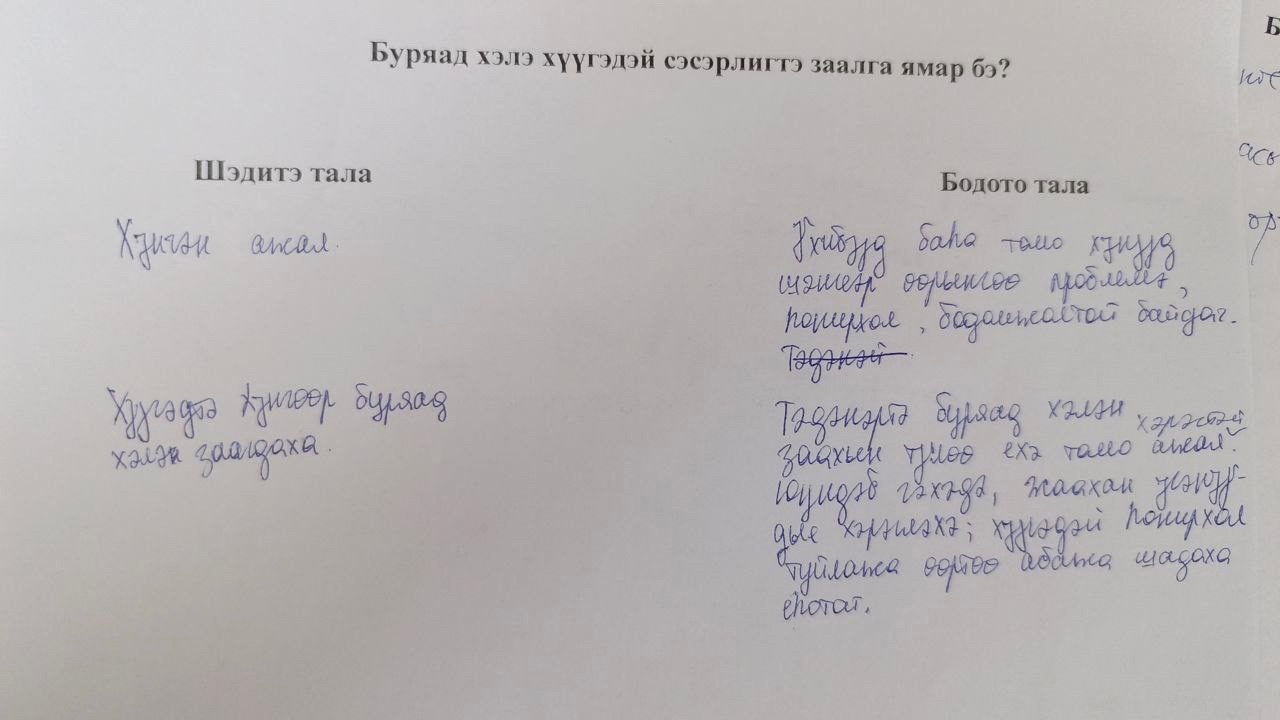 Буряад хэлэ хүүгэдэй сэсэрлигтэ заалга ямар бэ?
Шэдитэ тала
Хүнгэн ажал.
Хүүгэдтэ хүнгөөр буряад
хэлэн заагдаха.
Бодото тала
Үхибүүд баһа томо хүнүүд
шэнгеэр өөрынгөө проблемэ,
һонирхол, бодомжолтой байдаг.
Тэдэнэй
Тэдэнэртэ буряад хэлэн хэрэгтэй
заахын түлөө ехэ томо ажал.
Юундэб гэхэдэ, жаахан үеэнүү-
дые хэрэглэхэ; хүүгэдэй һонирхол
туйлажа өөртөө абажа шадаха
ёһотой.
Б
асы
ор